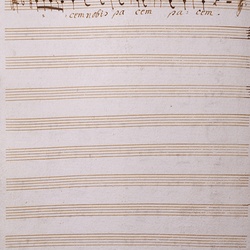 cem nobis pa cem pa cem.